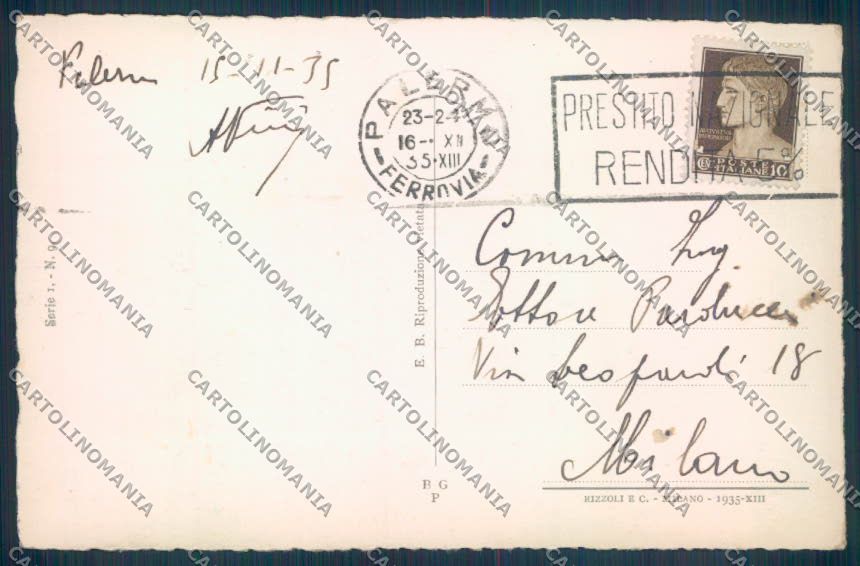 Palermo 15-11-35
PALERMO
23-24
16- XII
35·XIII
FERROVIA
PRESTITO NAZIONALE
RENDITA 5%
POSTE
ITALIANE 10
Serie 1. - N. 9
E. B. Riproduzione vietata
Comm. Ing.
Ettore Paolucci
Via Leopardi 18
Milano
B G
P
RIZZOLI E C. - MILANO - 1935-XIII
CARTOLINOMANIA